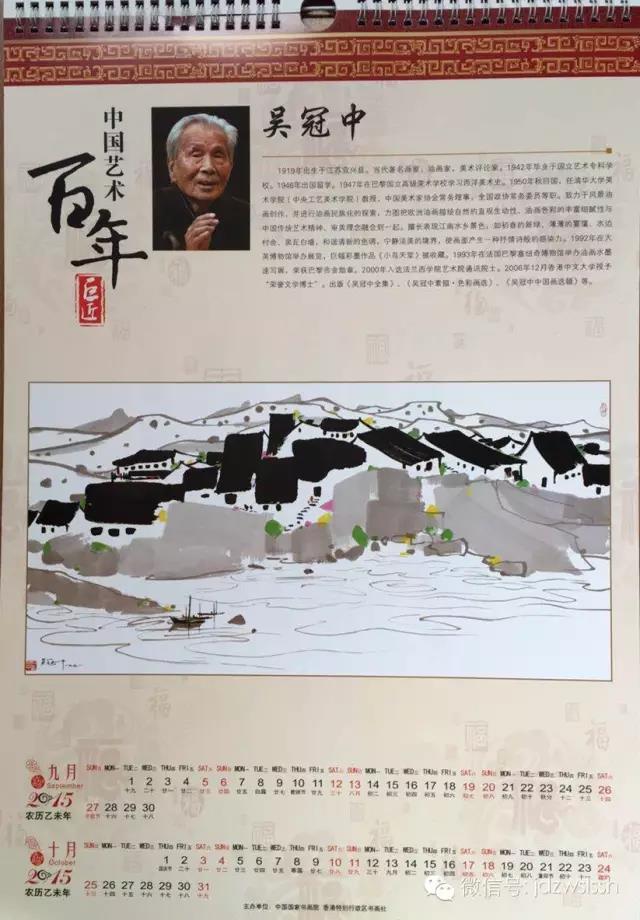 中国艺术
百年
巨匠
吴冠中
1919年出生于江苏宜兴县。当代著名画家、油画家、美术评论家。1942年毕业于国立艺术专科学
校。1946年出国留学。1947年在巴黎国立高级美术学校学习西洋美术史。1950年秋回国。任清华大学美
术学院(中央工艺美术学院)教授,中国美术家协会常务理事,全国政协常务委员等职。致力于风景油
画创作,并进行油画民族化的探索,力图把欧洲油画描绘自然的直观生动性、油画色彩的丰富细腻性与
中国传统艺术精神、审美理念融合到一起。擅长表现江南水乡景色,如初春的新绿、薄薄的雾霭、水边
村舍、黑瓦白墙,和谐清新的色调,宁静淡美的境界,使画面产生一种抒情诗般的感染力。1992年在大
英博物馆举办展览,巨幅彩墨作品《小鸟天堂》被收藏。1993年在法国巴黎塞纽奇博物馆举办油画水墨
速写展,荣获巴黎市金勋章。2000年入选法兰西学院艺术院通讯院士。2006年12月香港中文大学授予
“荣誉文学博士”。出版《吴冠中全集》、《吴冠中素描·色彩画选》、《吴冠中中国画选辑》等。
九月
September
2015
农历乙未年
SUN日 MON一 TUE二 WED三 THU四 FRI五 SAT六 SUN日 MON一 TUE二 WED三 THU四 FRI五 SAT六 SUN日 MON一 TUE二 WED三 THU四 FRI五 SAT六 SUN日 MON一 TUE二 WED三 THU四 FRI五 SAT六
1 2 3 4 5 6 7 8 9 10 11 12 13 14 15 16 17 18 19 20 21 22 23 24 25 26
27 28 29 30
十月
October
2015
农历乙未年
SUN日 MON一 TUE二 WED三 THU四 FRI五 SAT六 SUN日 MON一 TUE二 WED三 THU四 FRI五 SAT六 SUN日 MON一 TUE二 WED三 THU四 FRI五 SAT六 SUN日 MON一 TUE二 WED三 THU四 FRI五 SAT六
1 2 3 4 5 6 7 8 9 10 11 12 13 14 15 16 17 18 19 20 21 22 23 24
25 26 27 28 29 30 31
主办单位:中国国家书画院 香港特别行政区书画社
微信号: jdzwslssn